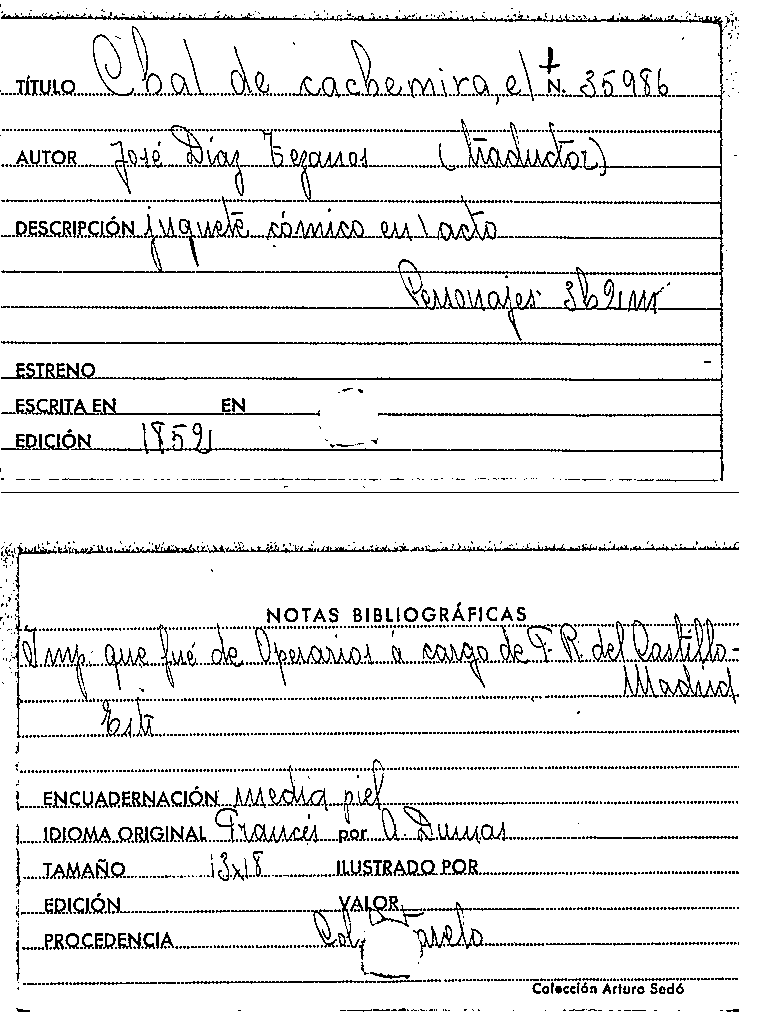 TÍTULO Chal de cachemira, el N. 35986
AUTOR José Díaz Tezanos (traductor)
DESCRIPCIÓN juguete cómico en 1 acto
Personajes 3h 2m
ESTRENO
ESCRITA EN EN
EDICIÓN 1852
NOTAS BIBLIOGRÁFICAS
Imp. que fué de Operarios á cargo de F. R. del Castillo-
Madrid
ENCUADERNACIÓN media piel
IDIOMA ORIGINAL Francés por A. Dumas
TAMAÑO 13x18 ILUSTRADO POR
EDICIÓN VALOR
PROCEDENCIA Col.
Colección Arturo Sedó